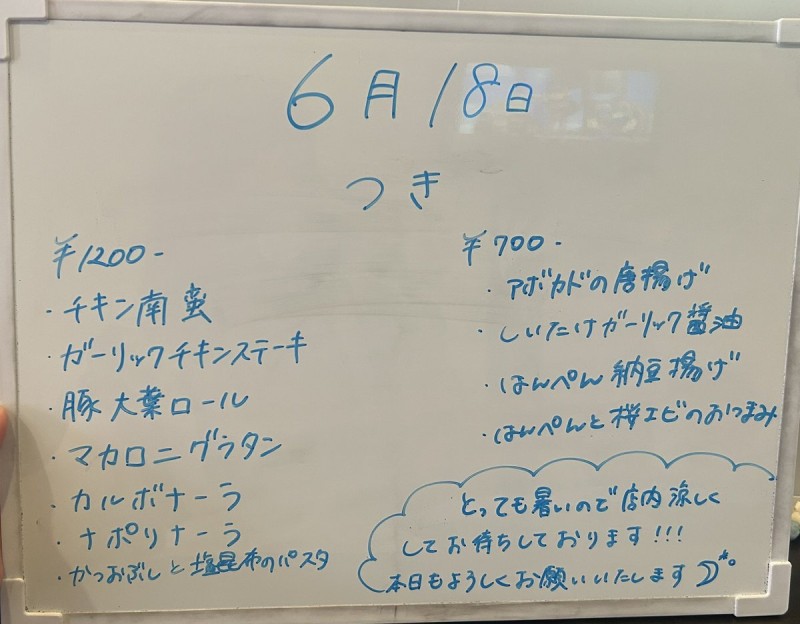 6月18日
つき
¥1200-
・チキン南蛮
・ガーリックチキンステーキ
・豚大葉ロール
・マカロニグラタン
・カルボナーラ
・ナポリナーラ
・かつおぶしと塩昆布のパスタ
¥700-
・アボカドの唐揚げ
・しいたけガーリック醤油
・はんぺん納豆揚げ
・はんぺんと桜エビのおつまみ
とっても暑いので店内涼しく
してお待ちしております!!!
本日もようしくお願いいたします